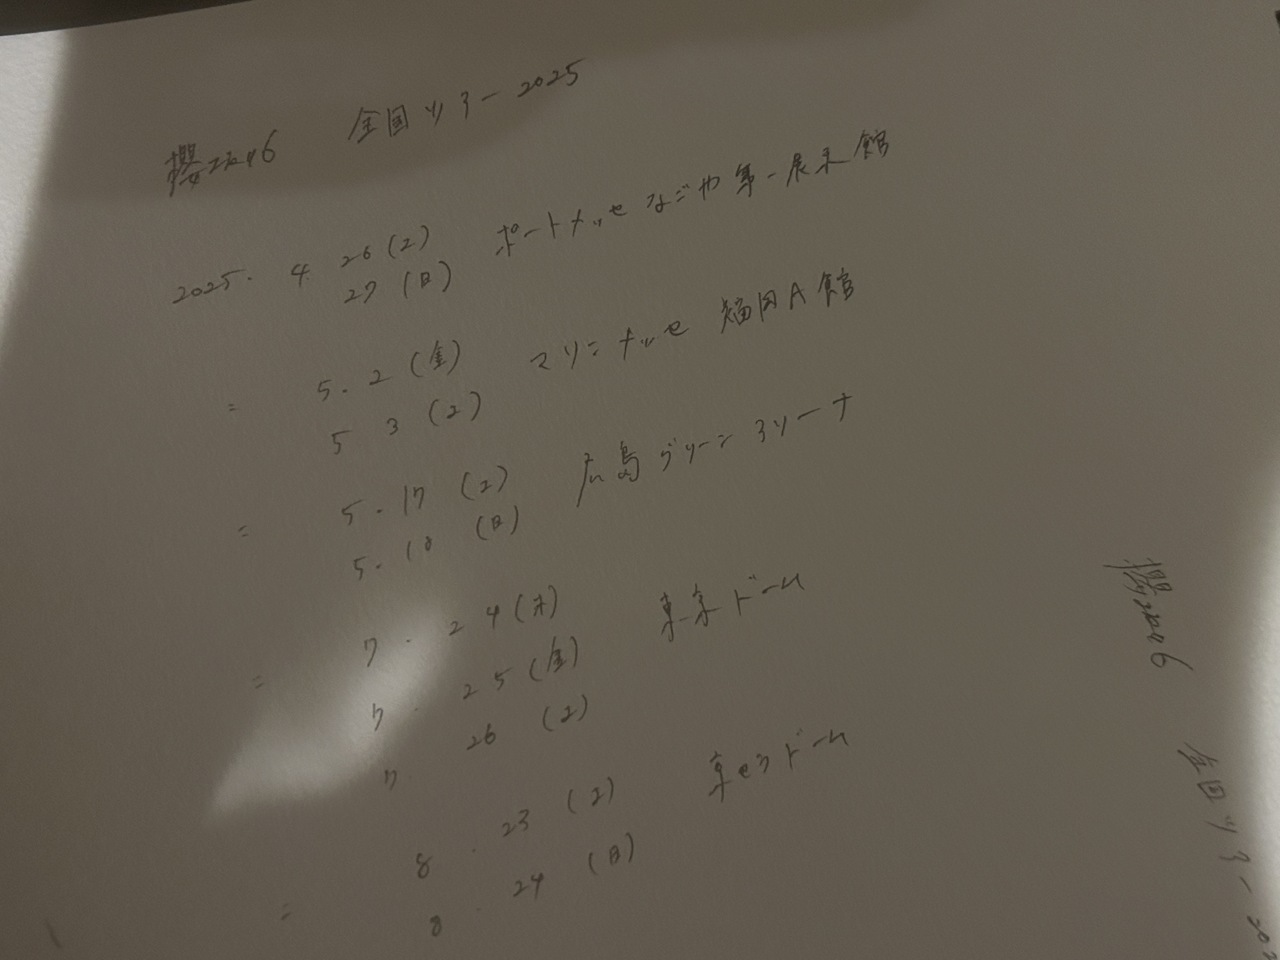 櫻坂46 全国ツアー2025
2025. 4. 26 (土) ポートメッセなごや第一展示館
27 (日)
〃 5. 2 (金) マリンメッセ 福岡A館
5 3 (土)
〃 5. 17 (土) 広島グリーンアリーナ
5. 18 (日)
〃 7. 24 (木) 東京ドーム
7. 25 (金)
7 26 (土)
〃 8. 23 (土) 京セラドーム
8. 24 (日)
櫻坂46 全国ツアー 202